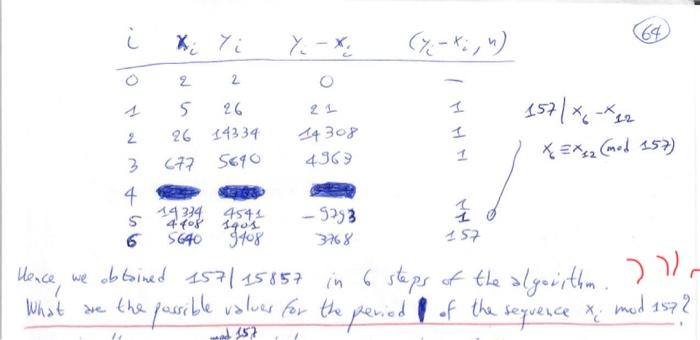 64
i x_i y_i y_i - x_i (y_i - x_i, n)
0 2 2 0 —
1 5 26 21 1
2 26 14334 14308 1
3 677 5640 4963 1
157 | x_6 - x_12
x_6 ≡ x_12 (mod 157)
4
14334 4541 -9793 1
5 4408 1401 1
6 5640 9408 3768 157
Hence, we obtained 157 | 15857 in 6 steps of the algorithm.
What are the possible values for the period of the sequence x_i mod 157?
mod 157